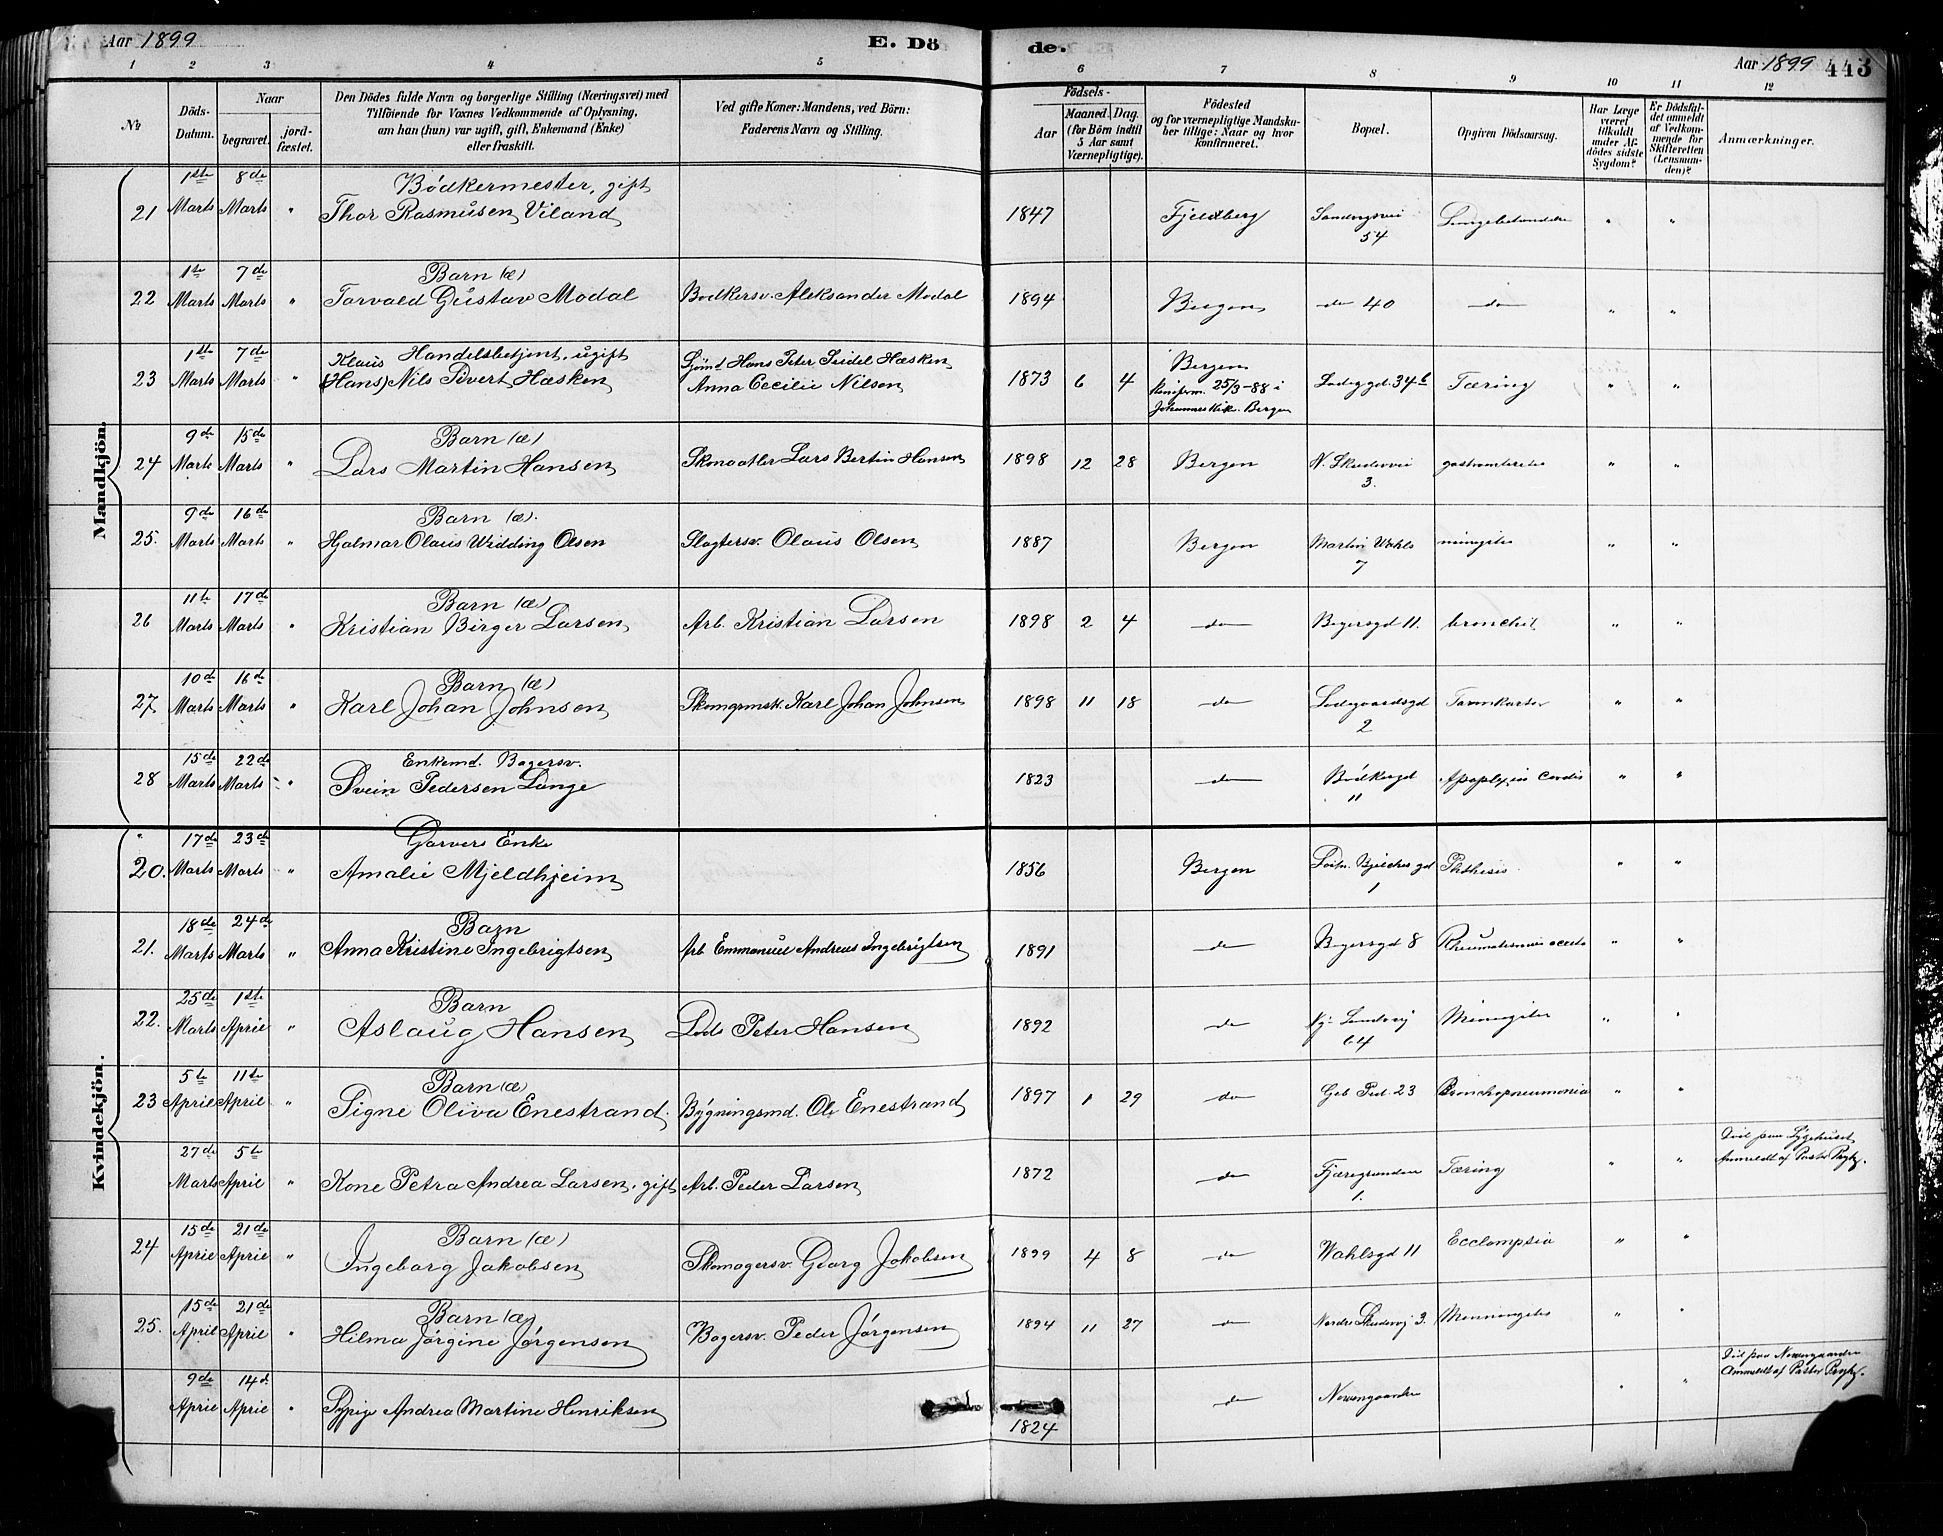 Aar 1899
E. Dö
de.
Aar 1899
443
1 2 3 4 5 6 7 8 9 10 11 12
№
Döds-
Datum.
Naar
begravet.
jord-
fæstet.
Den Dödes fulde Navn og borgerlige Stilling (Næringsvei) med
Tilföiende for Voxnes Vedkommende af Oplysning,
om han (hun) var ugift, gift, Enkemand (Enke)
eller fraskilt.
Ved gifte Koner: Mandens, ved Börn:
Faderens Navn og Stilling.
Födsels-
Aar
Maaned. Dag.
(for Börn indtil
5 Aar samt
Værnepligtige).
Födested
og for værnepligtige Mandsku-
ber tillige: Naar og hvor
konfirmeret.
Bopæl.
Opgiven Dödsaarsag.
Har Læge
været
tilkaldt
under Af-
dödes sidste
Sygdom?
Er Dödsful-
det anmeldt
af Vedkom-
mende for
Skifteretten
(Lensman-
den)?
Anmærkninger.
Mandkjön.
1ste 8de Bödkermester, gift
21 Marts Marts " Thor Rasmusen Viland 1847 Fjeldberg Sandvigsvei " "
54
1ste 7de Barn (æ)
22 Marts Marts " Torvald Gustav Modal Bødkersv. Aleksander Modal 1894 Bergen do 40 do " "
1ste 7de Klaus Handelsbetjent, ugift Sjömd Hans Peter Seidel Hæsken Bergen
23 Marts Marts " (Hans) Nils Sivert Hæsken Anna Cecilie Nilsen 1873 6 4 Konfirm. 25/3-88 i Ladegd. 34b Tæring " "
Johanneskik. Bergen
9de 15de Barn (æ)
24 Marts Marts " Lars Martin Hansen Lars Bertin Hansen 1898 12 28 Bergen N. Skudevei " "
3.
9de 16de Barn (æ).
25. Marts Marts " Hjalmar Olaus Widding Olsen Slagtersv. Olaus Olsen 1887 Bergen Martin Wahls " "
7
11te 17de Barn (æ)
26 Marts Marts " Kristian Birger Larsen Arb. Kristian Larsen 1898 2 4 do Bagersgd 11. bronchit " "
10de 16de Barn (æ)
27 Marts Marts " Karl Johan Johnsen Karl Johan Johnsen 1898 11 18 do Ladegaardsgd " "
2
15de 22de Enkemd. Bagersv.
28 Marts Marts " Svein Pedersen Lange 1823 do Bödkergd Apoplexia Cordis " "
11
Kvindekjön.
17de 23de Garvers Enke
20. Marts Marts " Amalie Mjeldhjeim 1856 Bergen Phthesis " "
1
18de 24de Barn
21. Marts Marts " Anna Kristine Ingebrigtsen Arb Emmanuel Andreas Ingebrigtsen 1891 do Bagersgd 8 " "
25de 1ste Barn
22. Marts April " Aslaug Hansen Lods Peter Hansen 1892 do Ny Sandvej " "
64
5te 11te Barn (æ)
23 April April " Signe Oliva Enestrand Bygningsmd. Ole Enestrand 1897 1 29 do 23 Bronchopneumonia "
27de 5te Död paa Sygehuset
Marts April " Kone Petra Andrea Larsen, gift Arb. Peder Larsen 1872 do Fjæregrunden Tæring " " Anmeldt af Pastor
1.
15de 21de Barn (æ)
24 April April " Ingeborg Jakobsen Skomagersv. Georg Jakobsen 1899 4 8 do Wahlsgd 11 Ecclampsia " "
15de 21de Barn (æ)
25. April April " Hilma Jörgine Jörgensen Bagersv. Peder Jörgensen 1894 11 27 do Nordre Skudevej 3. Menningites " "
9de 14d Död paa
April April " Pige Andrea Martine Henriksen do " " Anmeldt af Pastor
1824